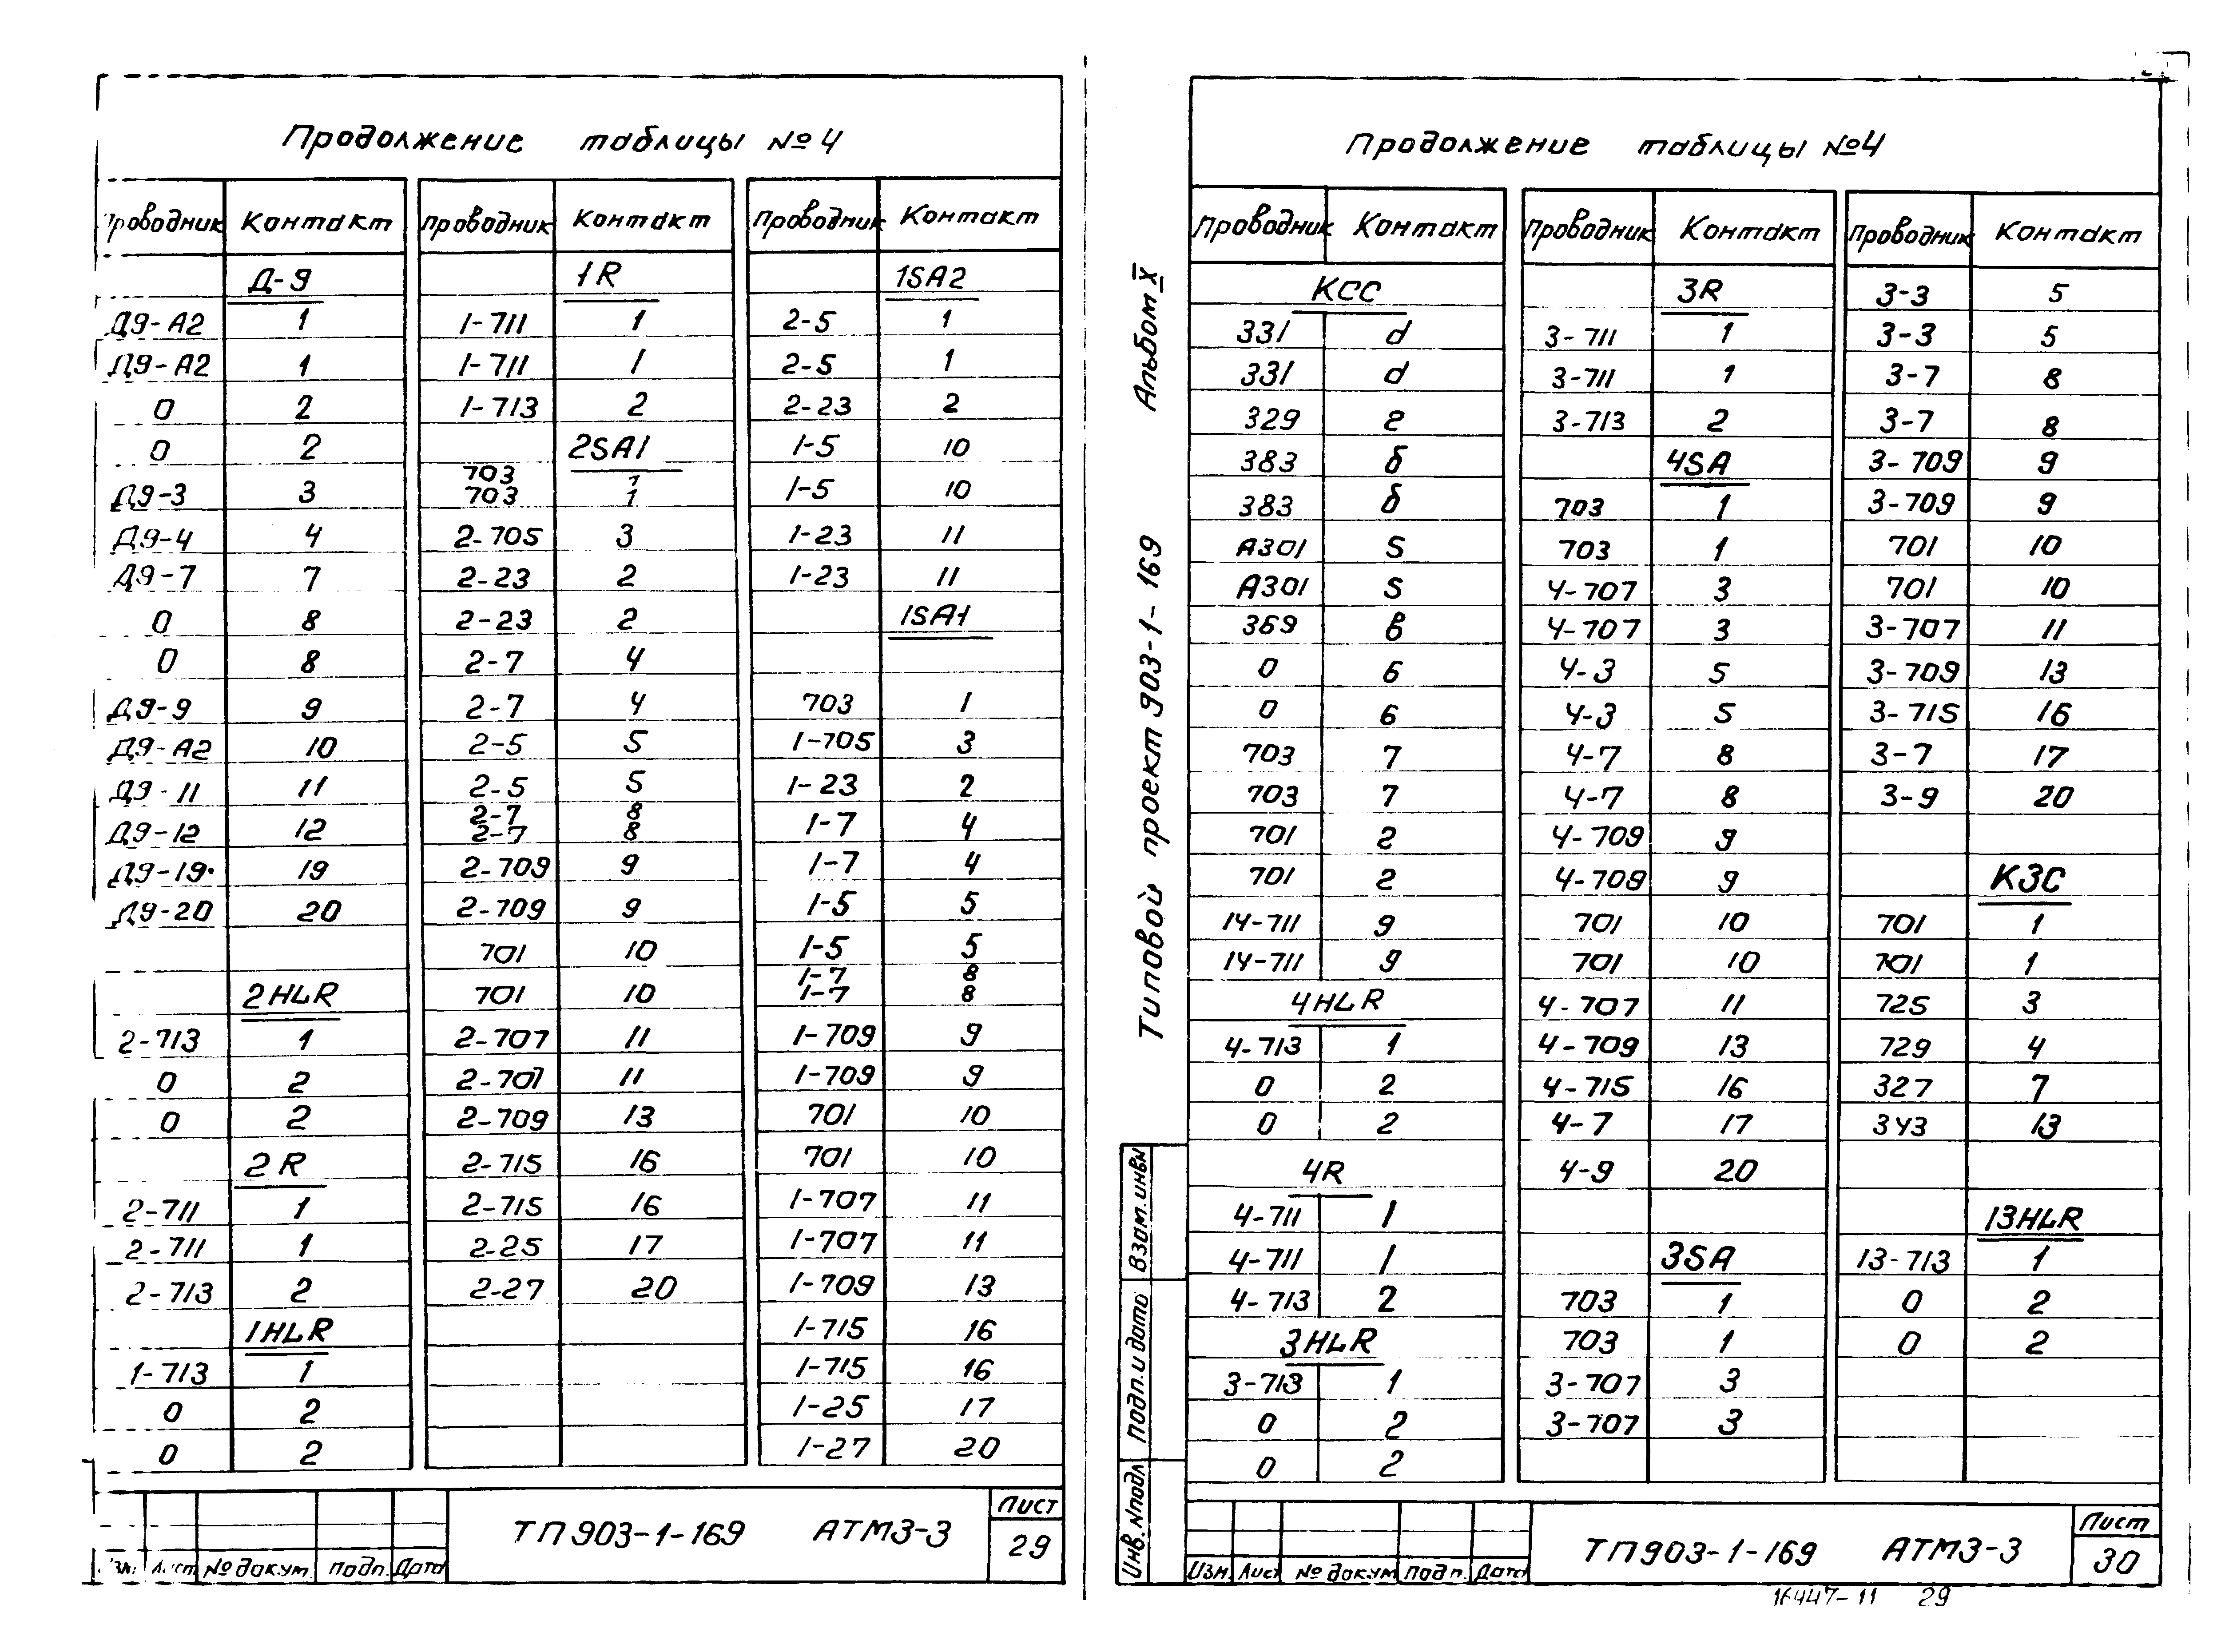 Продолжение таблицы №4
Проводник Контакт Проводник Контакт Проводник Контакт
Д-9 1R 1SA2
Д9-А2 1 1-711 1 2-5 1
Д9-А2 1 1-711 1 2-5 1
0 2 1-713 2 2-23 2
0 2 2SA1 1-5 10
703 1
Д9-3 3 703 1 1-5 10
Д9-4 4 2-705 3 1-23 11
Д9-7 7 2-23 2 1-23 11
0 8 2-23 2 1SA1
0 8 2-7 4
Д9-9 9 2-7 4 703 1
Д9-А2 10 2-5 5 1-705 3
Д9-11 11 2-5 5 1-23 2
2-7 8
Д9-12 12 2-7 8 1-7 4
Д9-19 19 2-709 9 1-7 4
Д9-20 20 2-709 9 1-5 5
701 10 1-5 5
1-7 8
2HLR 701 10 1-7 8
2-713 1 2-707 11 1-709 9
0 2 2-707 11 1-709 9
0 2 2-709 13 701 10
2R 2-715 16 701 10
2-711 1 2-715 16 1-707 11
2-711 1 2-25 17 1-707 11
2-713 2 2-27 20 1-709 13
1HLR 1-715 16
1-713 1 1-715 16
0 2 1-25 17
0 2 1-27 20
Изм. Лист № докум. Подп. Дата
ТП903-1-169 АТМ3-3
Лист
29
Альбом X
Типовой проект 903-1-169
Взам. инв№
Подп. и дата
Инв. №подл
Продолжение таблицы №4
Проводник Контакт Проводник Контакт Проводник Контакт
КСС 3R 3-3 5
331 d 3-711 1 3-3 5
331 d 3-711 1 3-7 8
329 г 3-713 2 3-7 8
383 б 4SA 3-709 9
383 б 703 1 3-709 9
А301 5 703 1 701 10
А301 5 4-707 3 701 10
369 в 4-707 3 3-707 11
0 6 4-3 5 3-709 13
0 6 4-3 5 3-715 16
703 7 4-7 8 3-7 17
703 7 4-7 8 3-9 20
701 2 4-709 9
701 2 4-709 9 КЗС
14-711 9 701 10 701 1
14-711 9 701 10 701 1
4HLR 4-707 11 725 3
4-713 1 4-709 13 729 4
0 2 4-715 16 327 7
0 2 4-7 17 343 13
4R 4-9 20
4-711 1 13HLR
4-711 1 3SA 13-713 1
4-713 2 703 1 0 2
3HLR 703 1 0 2
3-713 1 3-707 3
0 2 3-707 3
0 2
Изм. Лист № докум Подп. Дата
ТП903-1-169 АТМ3-3
Лист
30
16447-11 29